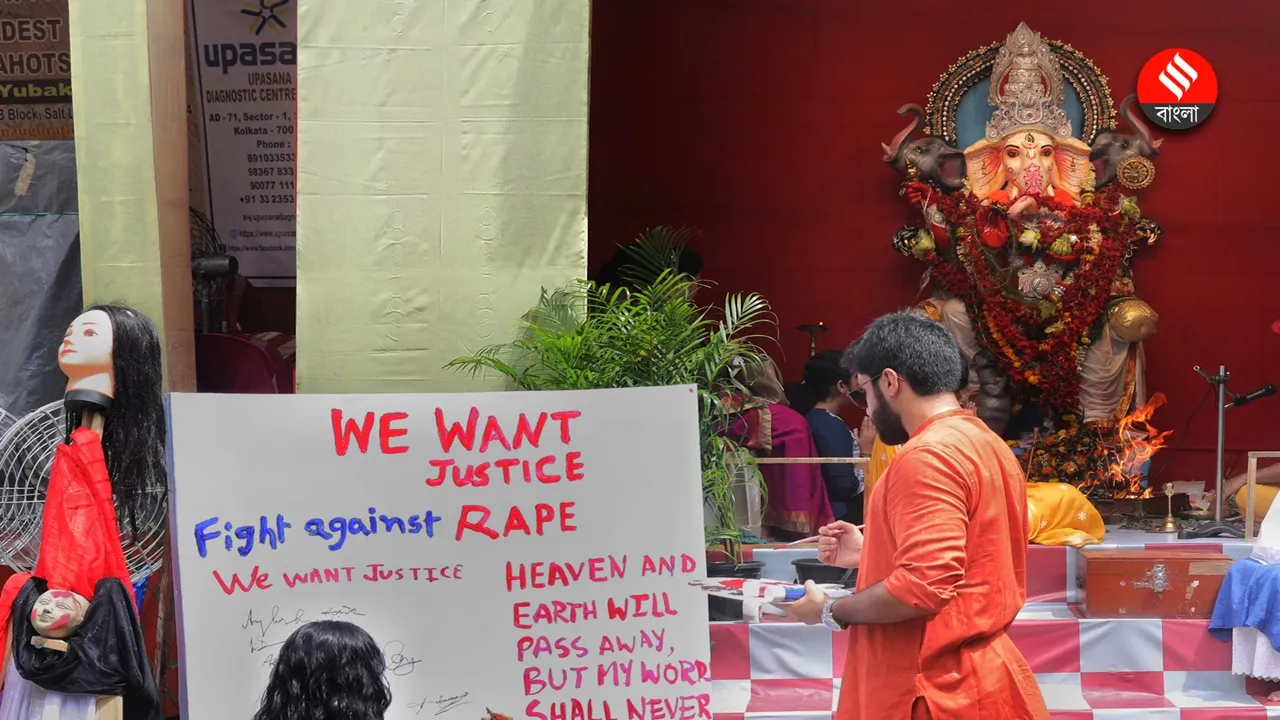 DEST
AHOTS
Yubak
B Block, Salt L
upasa
UPASANA
DIAGNOSTIC CENTRE
AD - 71, Sector - 1,
Kolkata - 700
Phone :
89103353
98367 833
90077 111
+91 33 2353
বাংলা
WE WANT
JUSTICE
Fight against RAPE
WE WANT JUSTICE
HEAVEN AND
EARTH WILL
PASS AWAY,
BUT MY WORD
SHALL NEVER